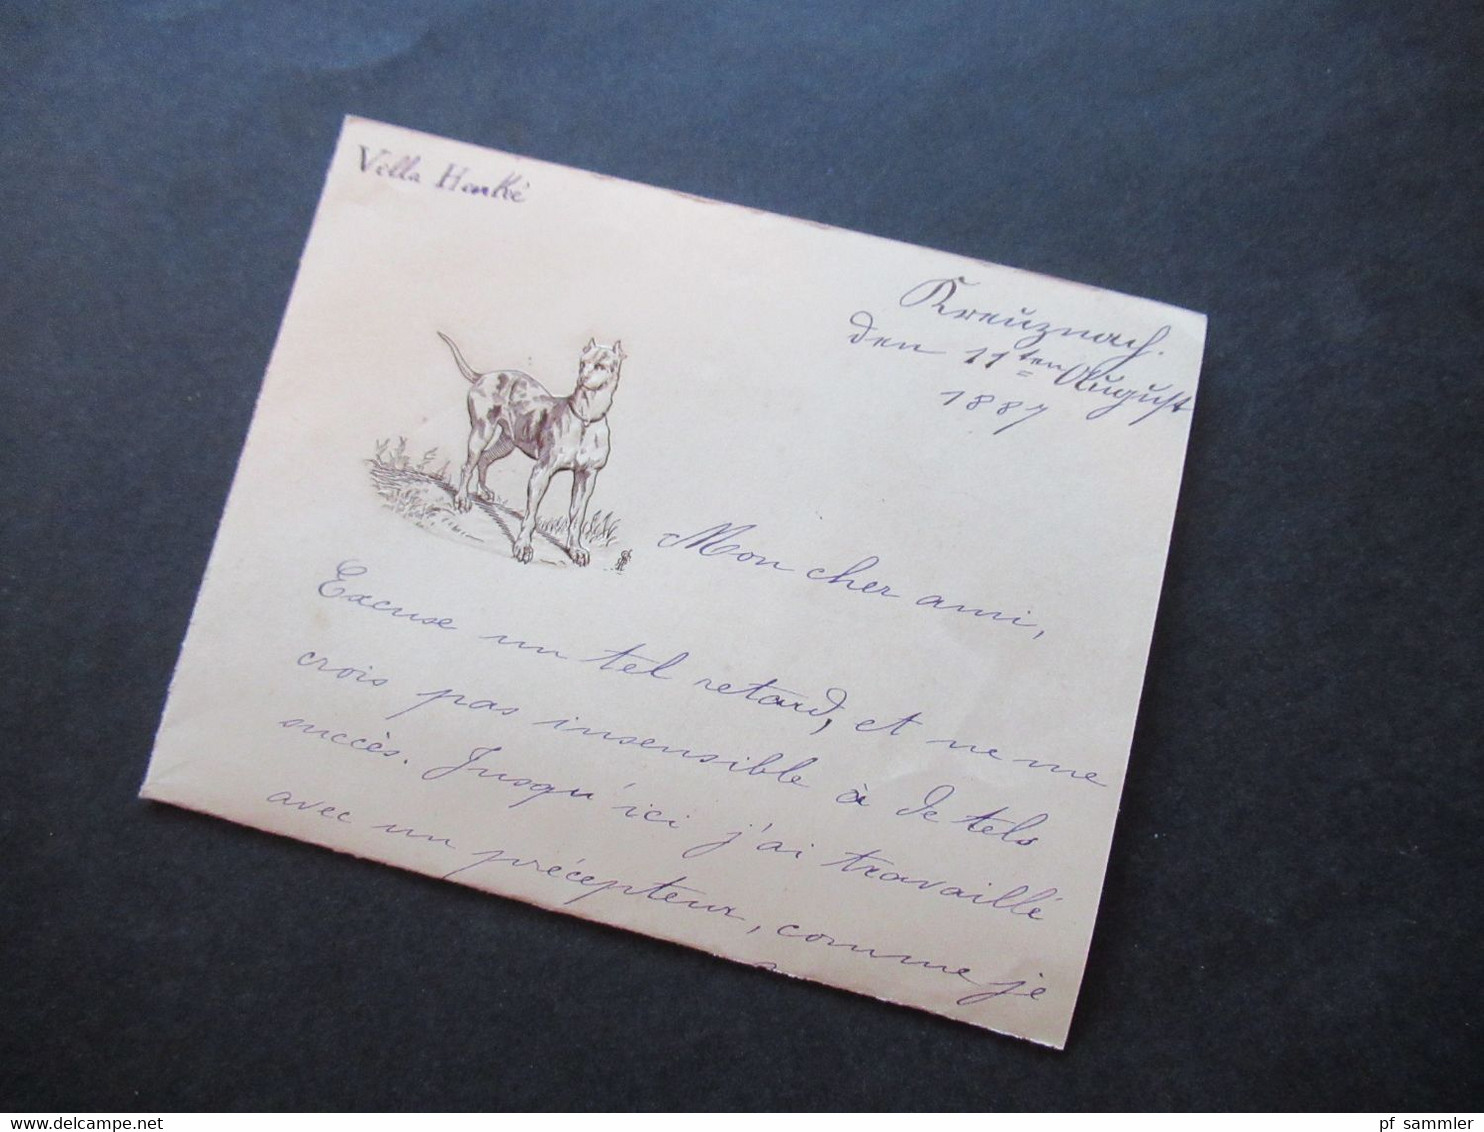 Villa Henké
Kreuznach.
den 11ten August
1887
Mon cher ami,
Excuse un tel retard, et ne me
crois pas insensible à de tels
succès. Jusqu'ici j'ai travaillé
avec un précepteur, comme je
www.delcampe.net
pf_sammler